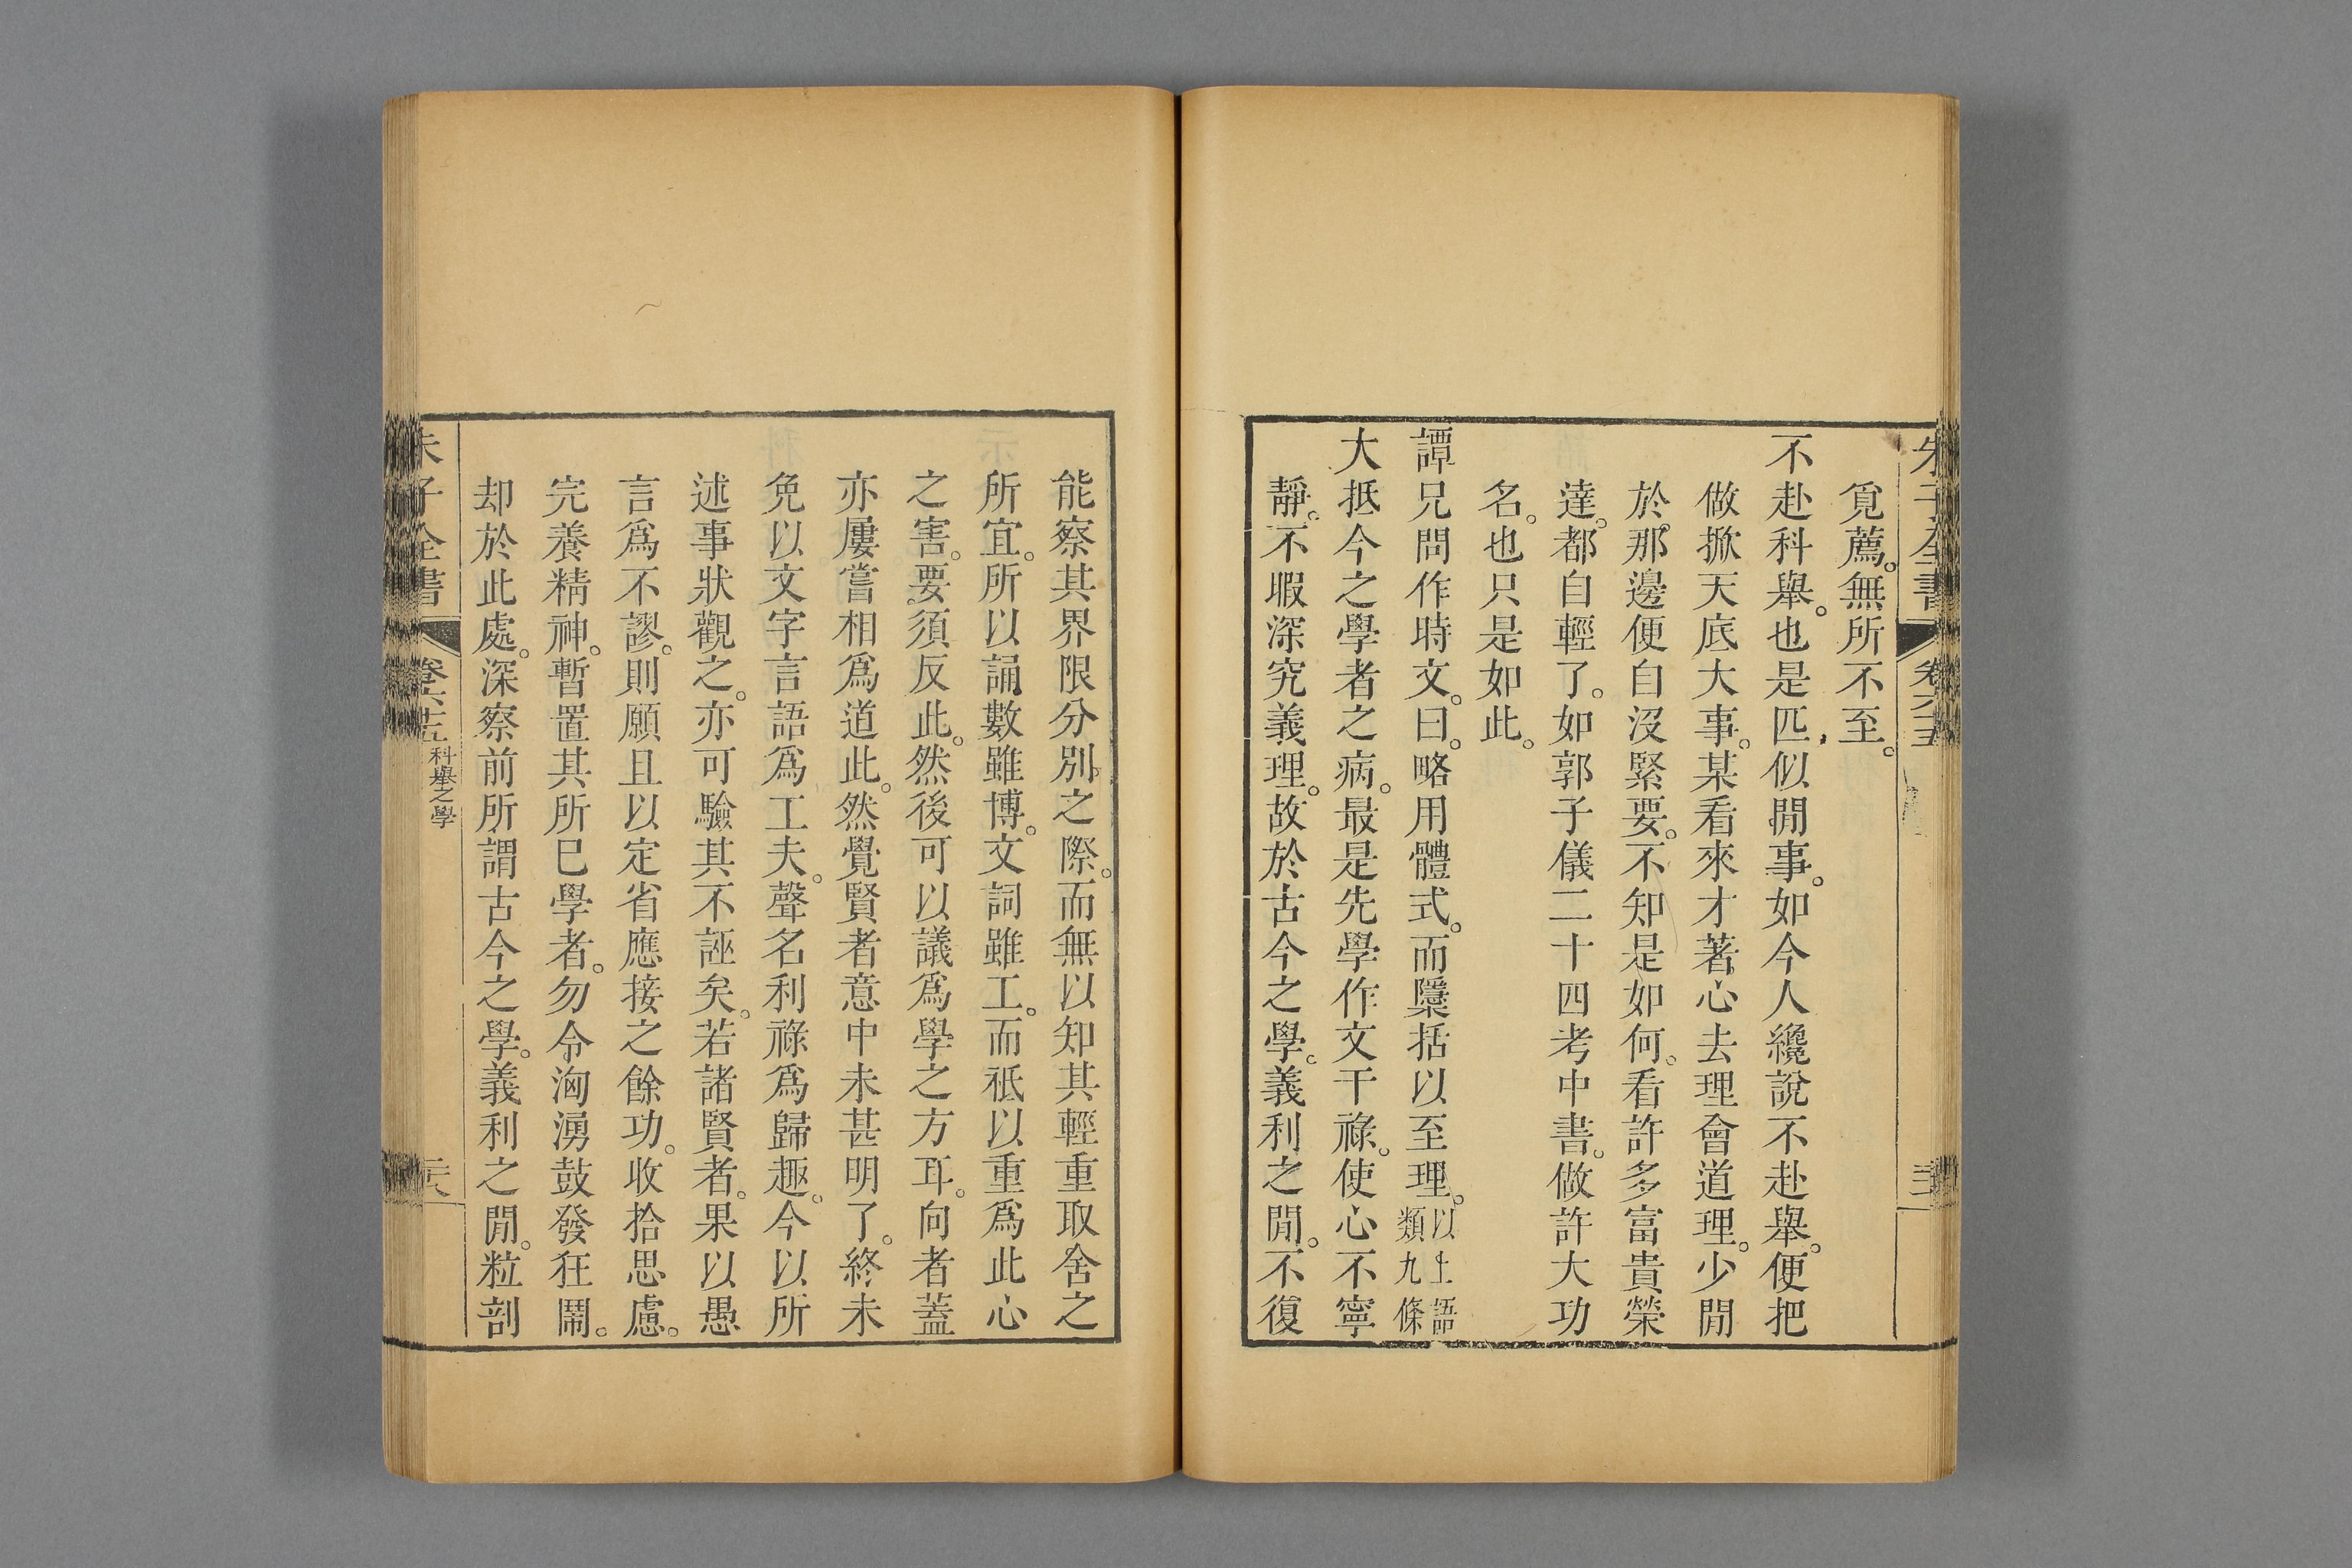 朱子全書 卷六十五
覓薦。無所不至。
不赴科舉。也是匹似閒事。如今人纔說不赴舉。便把
做掀天底大事。某看來才著心去理會道理。少閒
於那邊便自沒緊要。不知是如何。看許多富貴榮
達。都自輕了。如郭子儀二十四考中書。做許大功
名。也只是如此。
譚兄問作時文。曰。略用體式。而隱括以至理。以上語類九條
大抵今之學者之病。最是先學作文干祿。使心不寧
靜。不暇深究義理。故於古今之學。義利之閒。不復
能察其界限分別之際。而無以知其輕重取舍之
所宜。所以誦數雖博。文詞雖工。而祗以重爲此心
之害。要須反此。然後可以議爲學之方耳。向者蓋
亦屢嘗相爲道此。然覺賢者意中未甚明了。終未
免以文字言語爲工夫。聲名利祿爲歸趣。今以所
述事狀觀之。亦可驗其不誣矣。若諸賢者。果以愚
言爲不謬。則願且以定省應接之餘功。收拾思慮。
完養精神。暫置其所已學者。勿令洶湧鼓發狂鬧。
却於此處。深察前所謂古今之學。義利之閒。粒剖
朱子全書 卷六十五 科舉之學